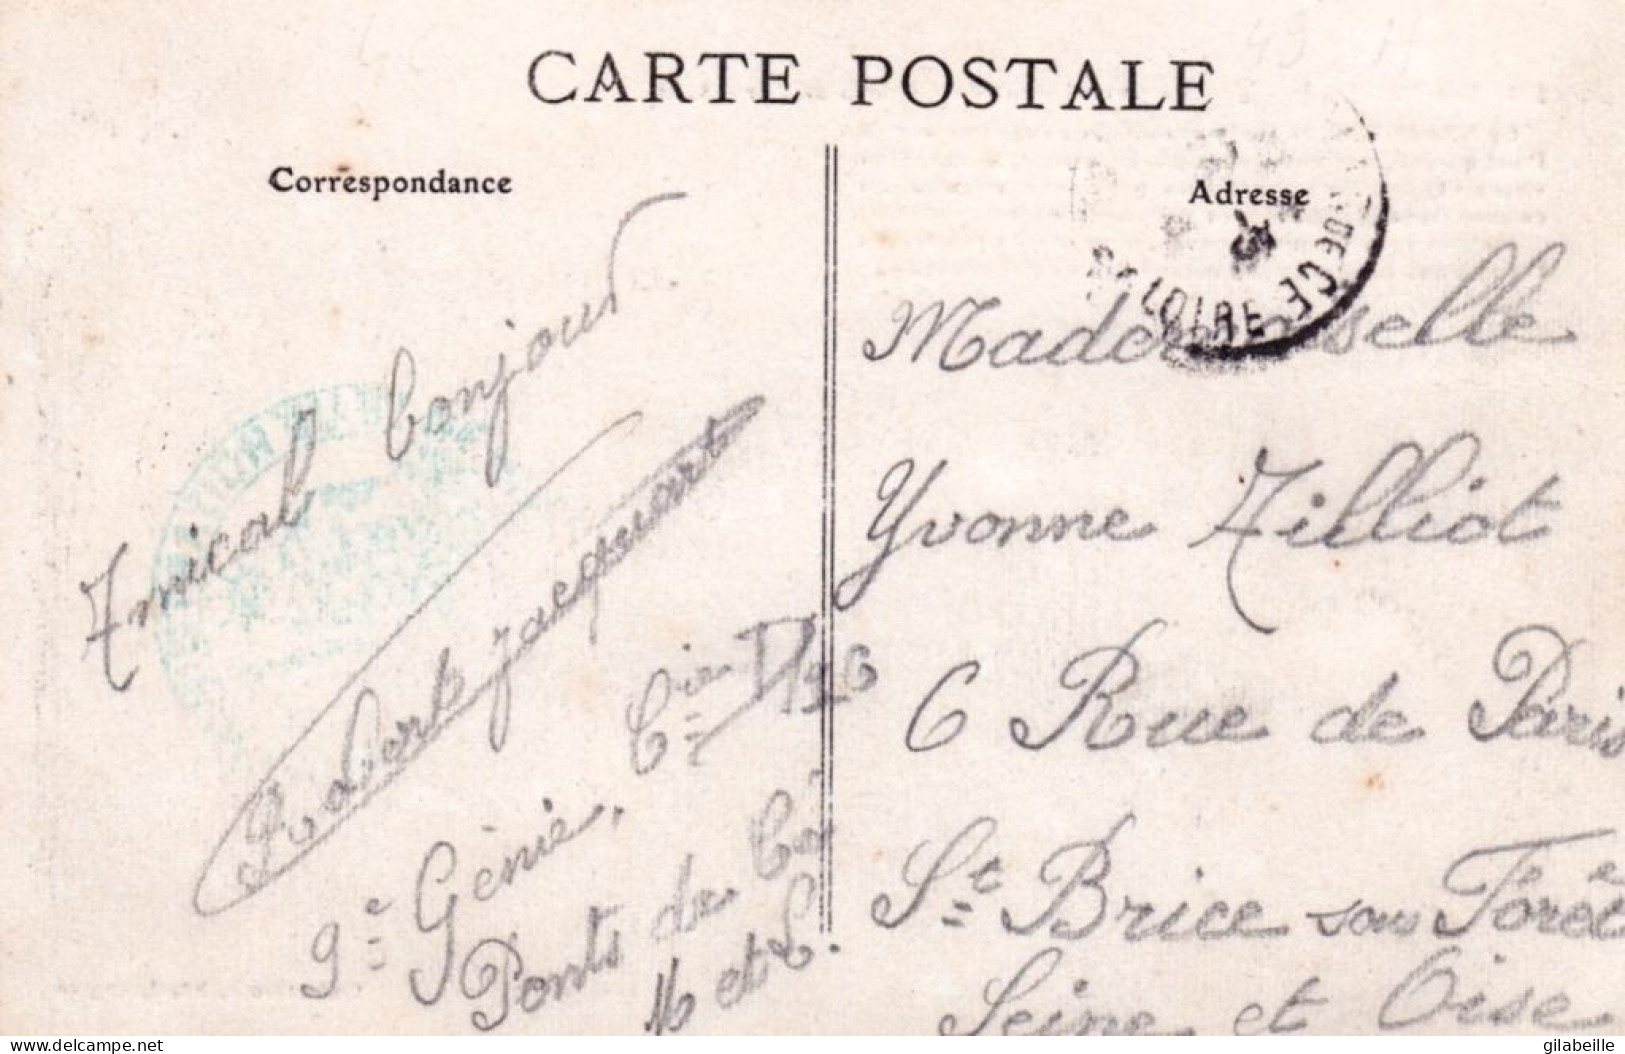 CARTE POSTALE
Correspondance
Amical bonjour
Robert Jacquart
9e Génie, Cie D/26
Ponts de Cé
M et L.
Adresse
Mademoiselle
Yvonne Tilliot
6 Rue de Paris
St Brice sous Forêt
Seine et Oise
LOIRE
delcampe.net
gilabeille